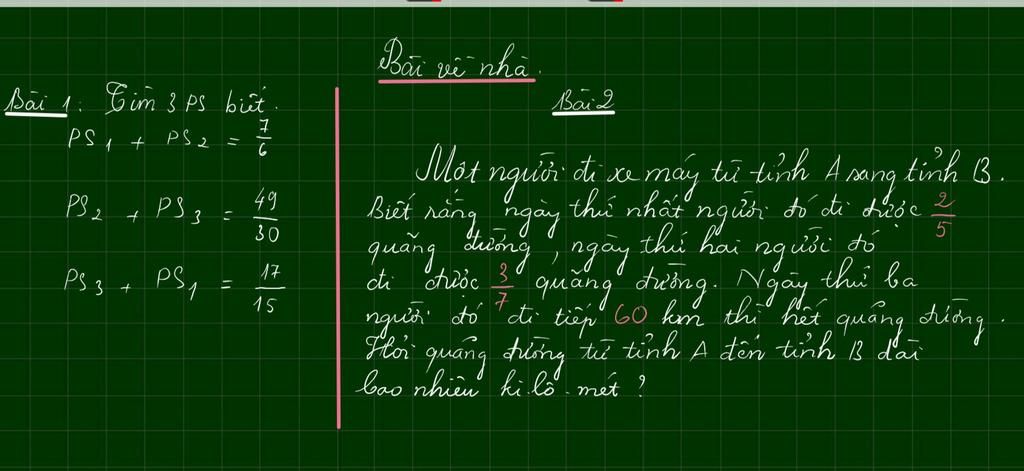 Bài về nhà.
Bài 1: Tìm 3 PS biết.
PS1 + PS2 = 7/6
PS2 + PS3 = 49/30
PS3 + PS1 = 17/15
Bài 2
Một người đi xe máy từ tỉnh A sang tỉnh B.
Biết rằng ngày thứ nhất người đó đi được 2/5
quãng đường, ngày thứ hai người đó
đi được 3/7 quãng đường. Ngày thứ ba
người đó đi tiếp 60 km thì hết quãng đường.
Hỏi quãng đường từ tỉnh A đến tỉnh B dài
bao nhiêu ki-lô-mét?